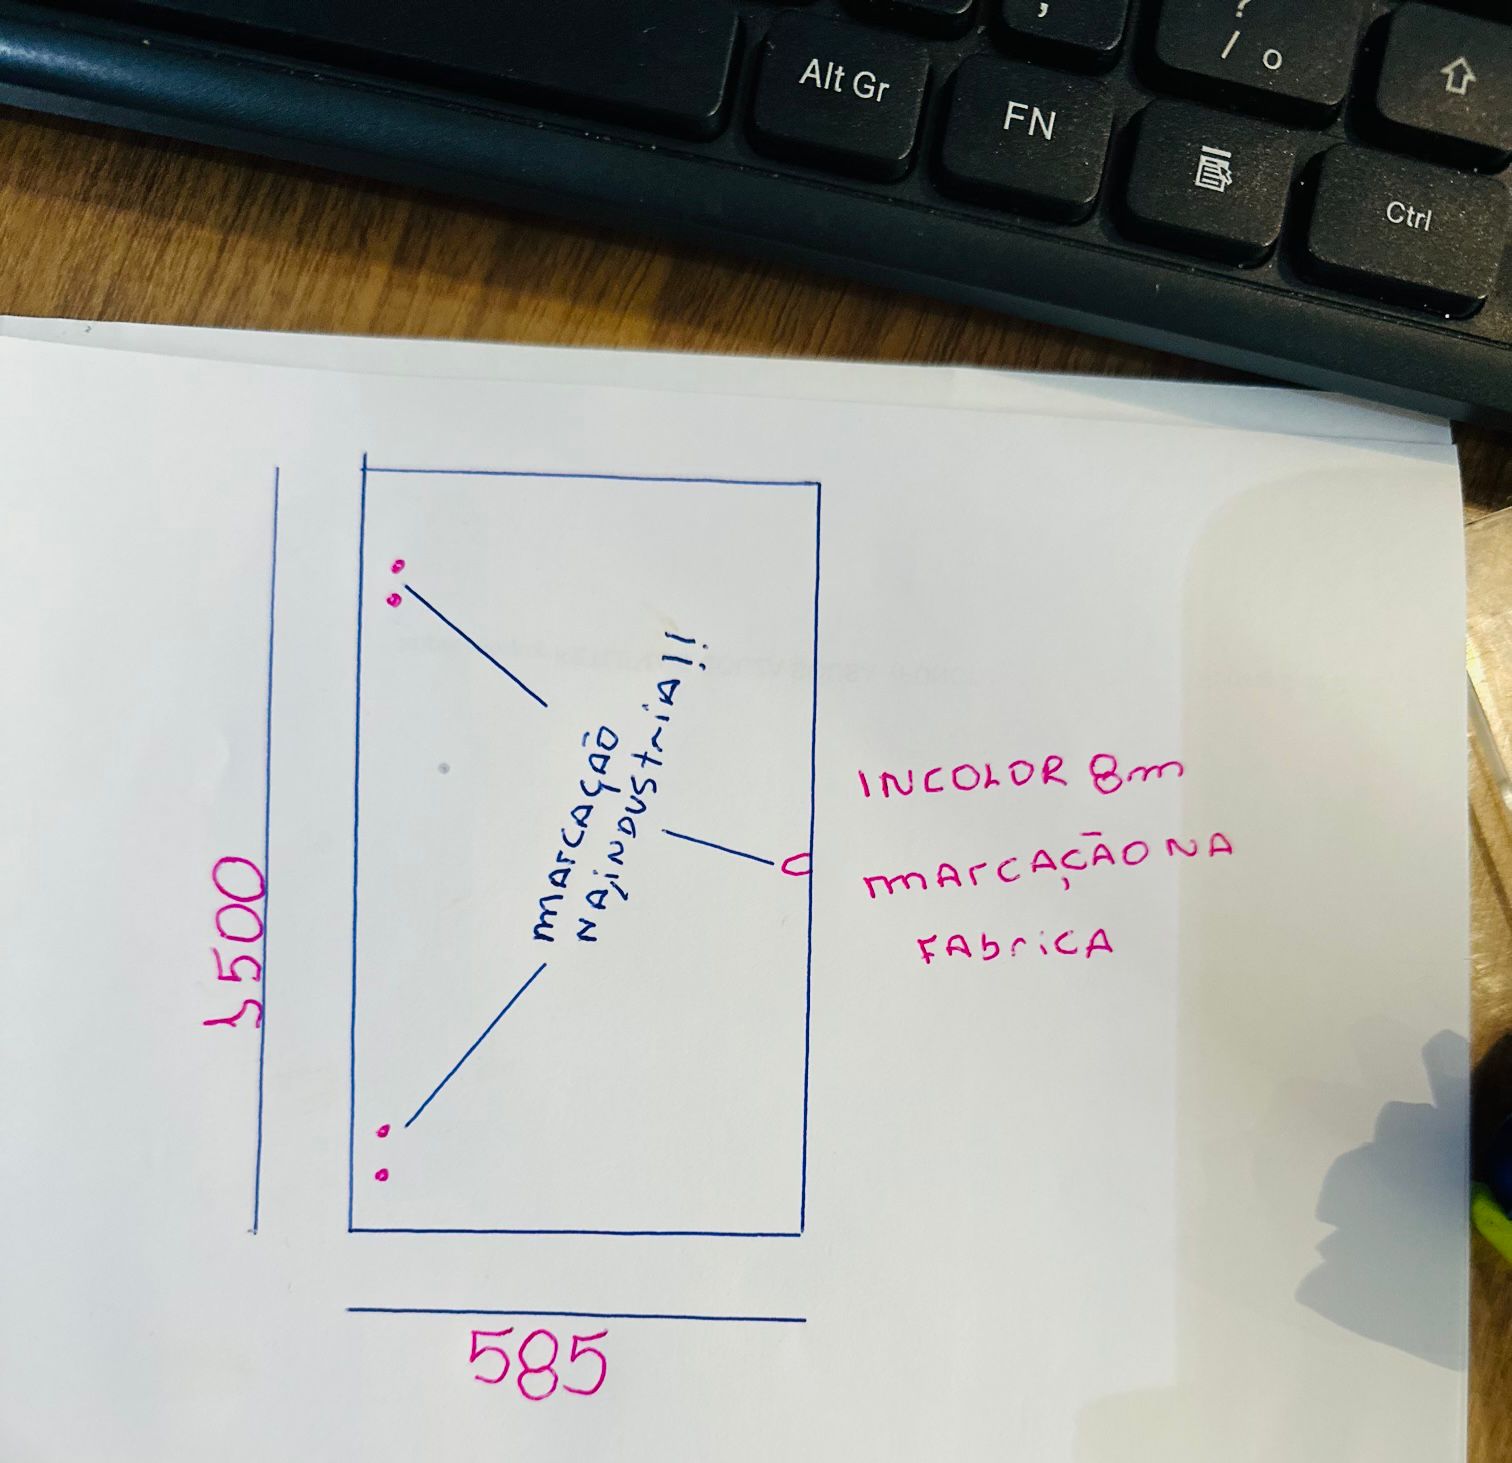 ;
?
/ °
Alt Gr
FN
Ctrl
1500
MArCAÇÃO
NA iNDUStriA!!
INCOLOR 8m
MArCAÇÃO NA
FAbriCA
585